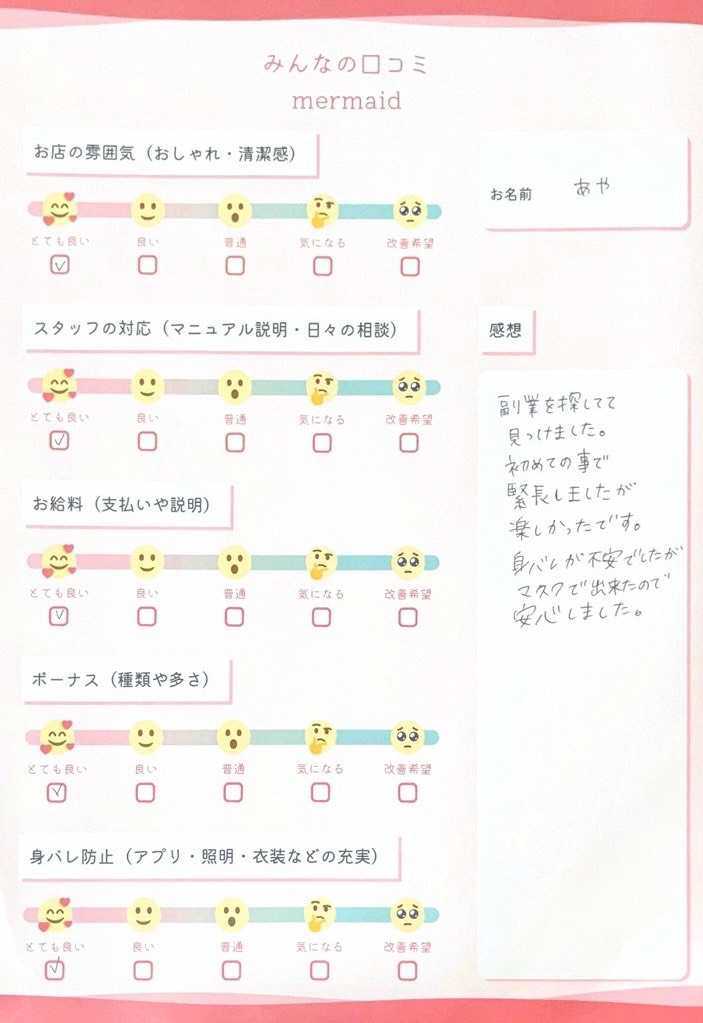 みんなの口コミ
mermaid
お店の雰囲気（おしゃれ・清潔感）
とても良い 良い 普通 気になる 改善希望
お名前 あや
スタッフの対応（マニュアル説明・日々の相談）
とても良い 良い 普通 気になる 改善希望
お給料（支払いや説明）
とても良い 良い 普通 気になる 改善希望
ボーナス（種類や多さ）
とても良い 良い 普通 気になる 改善希望
身バレ防止（アプリ・照明・衣装などの充実）
とても良い 良い 普通 気になる 改善希望
感想
副業を探してて
見つけました。
初めての事で
緊長しましたが
楽しかったです。
身バレが不安でしたが
マスクで出来たので
安心しました。